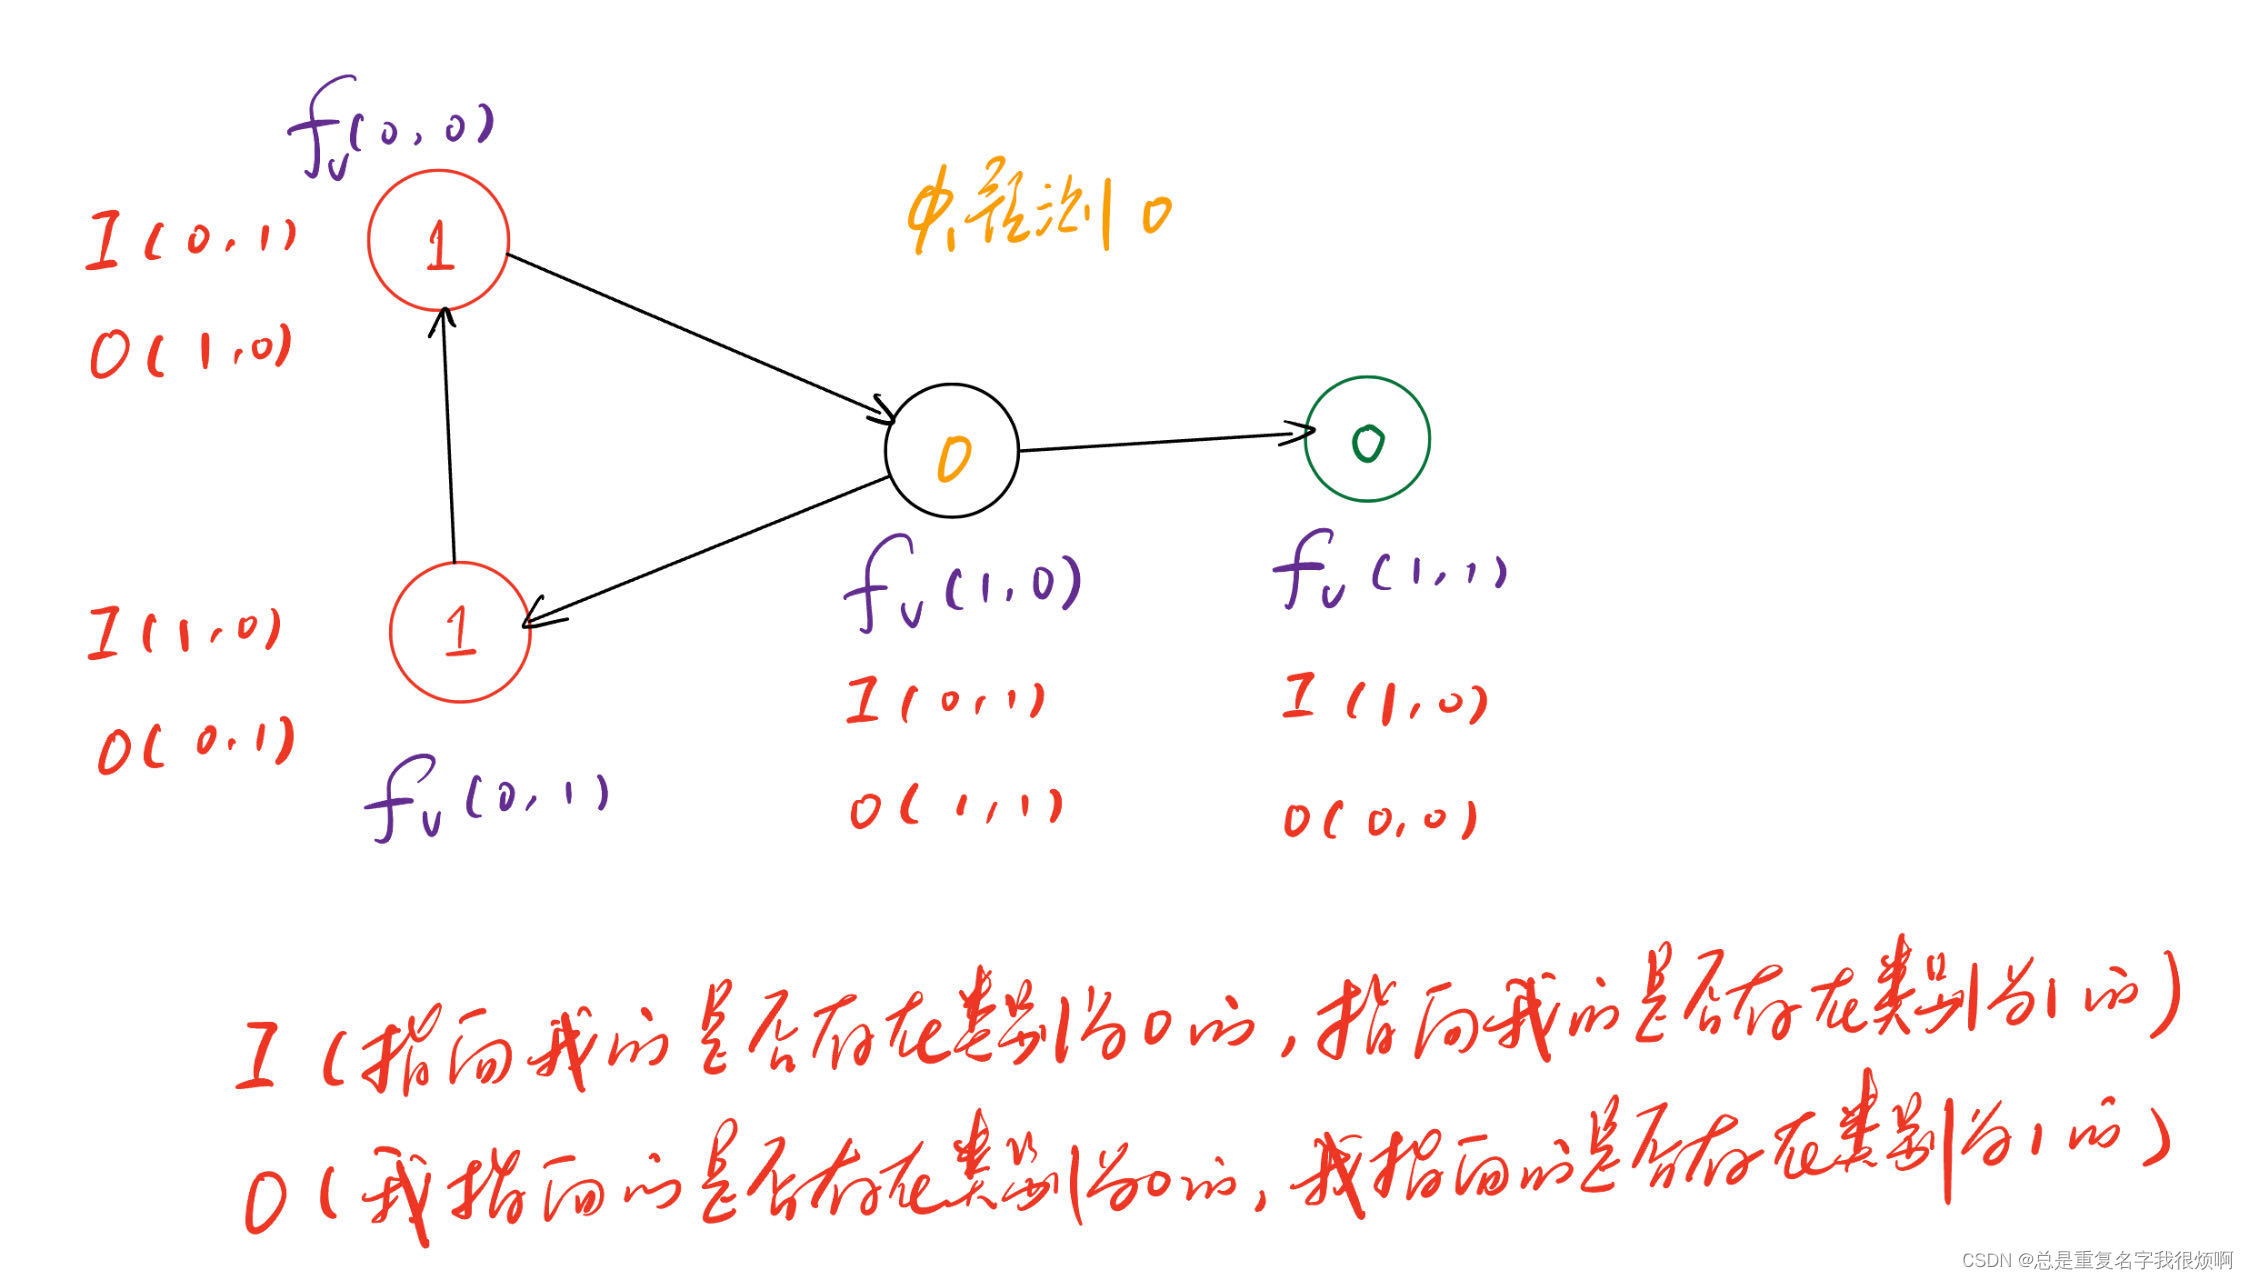 f_v(0,0)
I(0,1)
1
Φ₁预测0
O(1,0)
0
0
I(1,0)
1
f_v(1,0)
f_v(1,1)
O(0,1)
I(0,1)
I(1,0)
f_v(0,1)
O(1,1)
O(0,0)
I(指向我的是否存在类别为0的,指向我的是否存在类别为1的)
O(我指向的是否存在类别为0的,我指向的是否存在类别为1的)
CSDN @总是重复名字我很烦啊